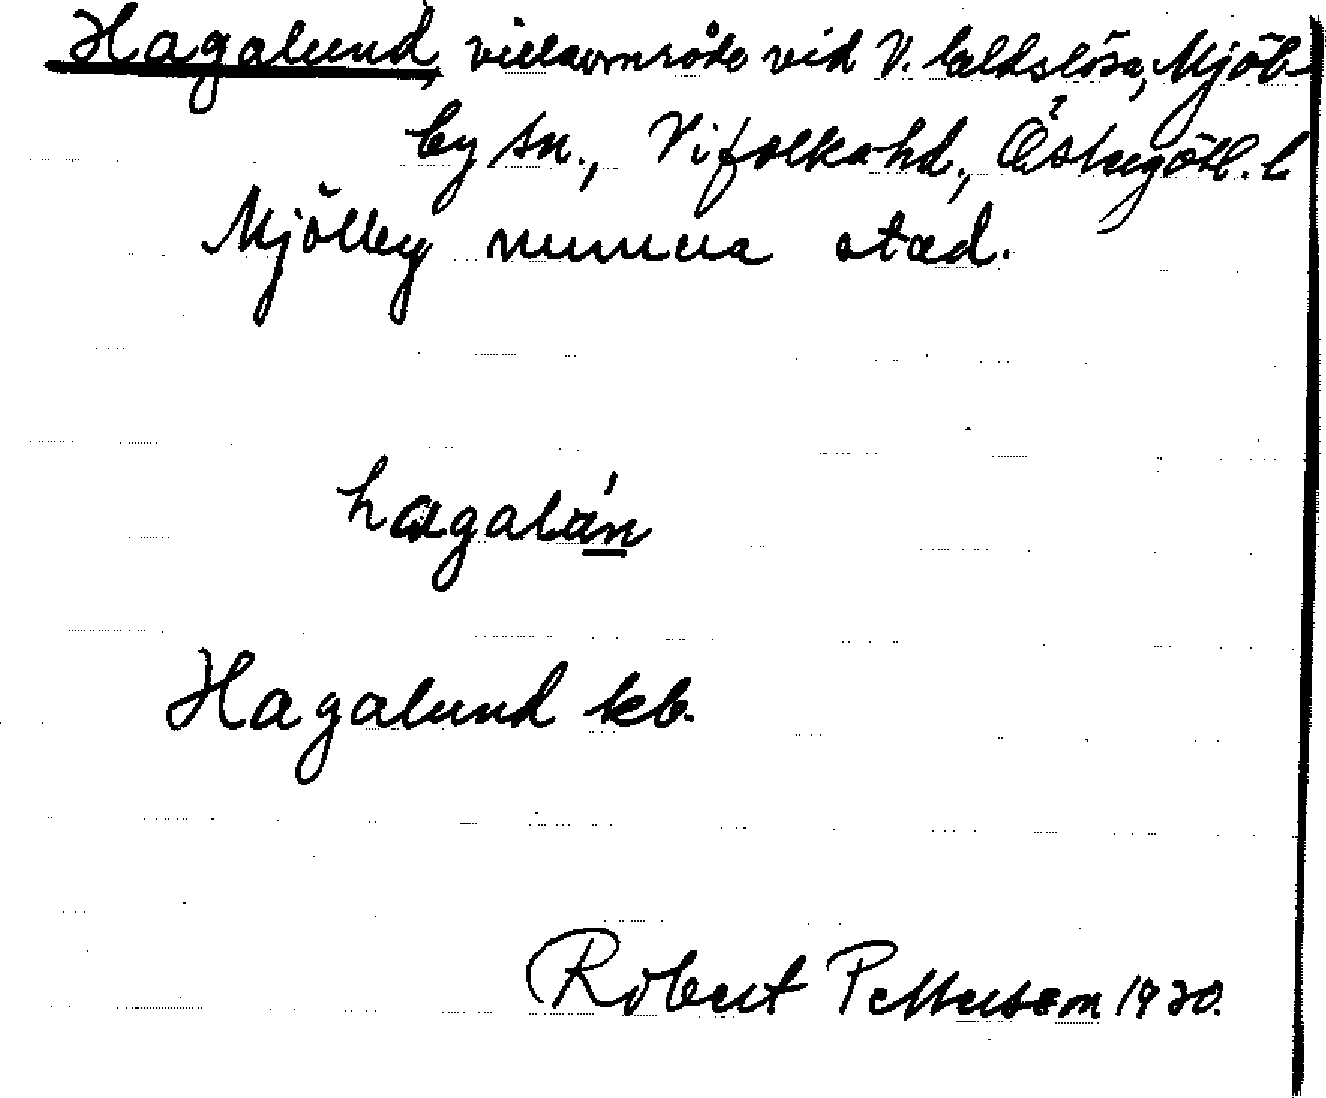 Hagalund, villaområde vid V. Eldslösa, Mjöl-
by sn., Vifolka hd., Östergötl. l
Mjölby numera stad.
hagalún
Hagalund kb.
Robert Pettersson 1930.